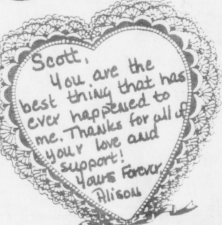 Scott,
You are the
best thing that has
ever happened to
me. Thanks for all of
your love and
support!
Yours Forever
Alison